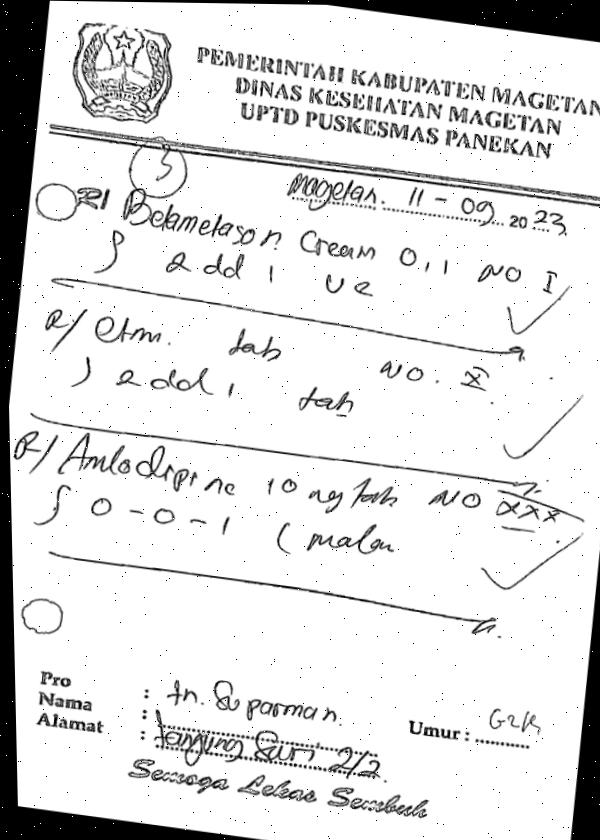 PEMERINTAH KABUPATEN MAGETAN
DINAS KESEHATAN MAGETAN
UPTD PUSKESMAS PANEKAN
3
Magetan. 11 - 09 2023
R/ Betametason Cream 0,1 NO I
ʃ 2 dd 1 ue
R/ Ctm. tab NO. X
ʃ 2 dd 1 tab
R/ Amlodipine 10 mg tab NO XXX
ʃ 0 - 0 - 1 ( malam
Pro
Nama : tn. Suparman. Umur :
Alamat : Tanjung Sari 2/2
Semoga Lekas Sembuh